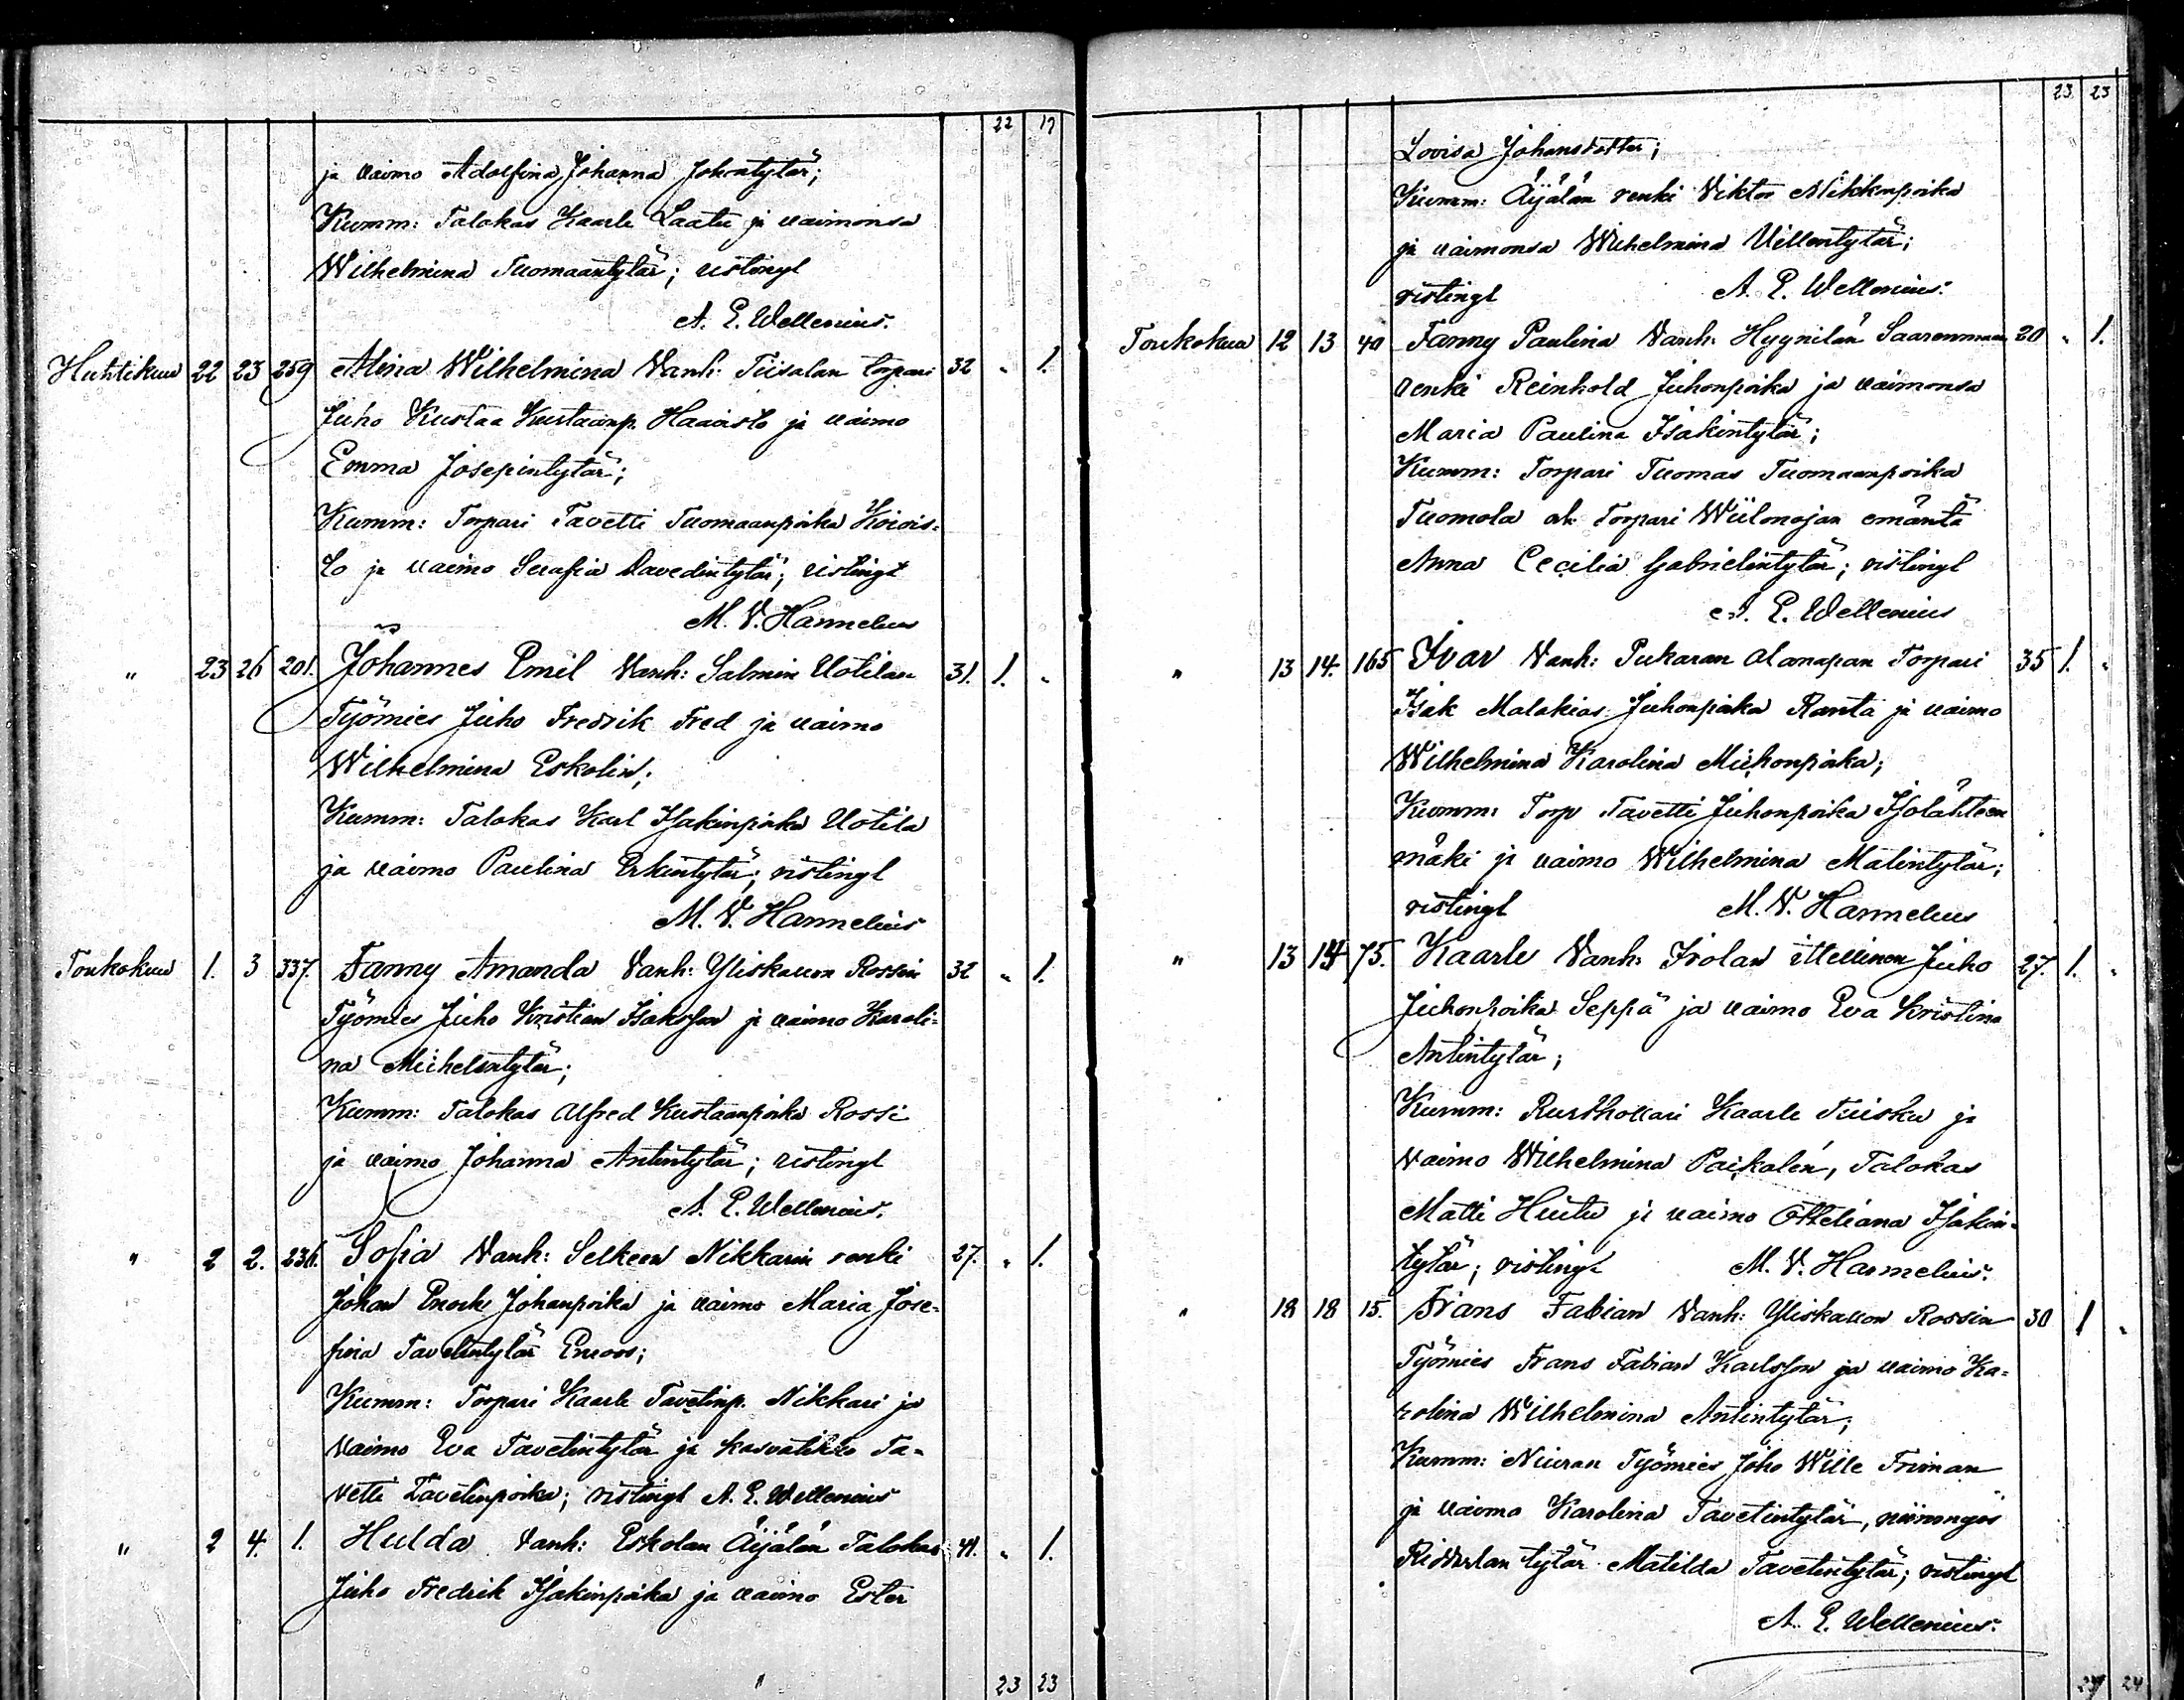 22 17
ja vaimo Adolfina Johanna Johantytär;
Kumm: Talokas Kaarle Laatu ja vaimonsa
Wilhelmina Tuomaantytär; ristinyt
A. E. Wellenius.
Huhtikuu 22 23 259 Alina Wilhelmina Vanh: Tiisalan torpari 32 " 1.
Juho Kustaa Kustaanp. Haavisto ja vaimo
Emma Josepintytär;
Kumm: Torpari Tavetti Tuomaanpoika Koivis-
to ja vaimo Serafia Davedintytär; ristinyt
M. V. Hannelius
" 23 26 201. Johannes Emil Vanh: Salmin Uotilan 31. 1. "
Työmies Juho Fredrik Fred ja vaimo
Wilhelmina Eskolin;
Kumm: Talokas Karl Isakinpoika Uotila
ja vaimo Paulina Erkintytär; ristinyt
M. V. Hannelius
Toukokuu 1. 3 337. Fanny Amanda Vanh: Yliskallion Rossin 32 " 1.
Työmies Juho Kristian Isaksson ja vaimo Karoli-
na Michelintytär;
Kumm: Talokas Alfred Kustaanpoika Rossi
ja vaimo Johanna Antintytär; ristinyt
A. E. Wellenius.
" 2 2. 236. Sofia Vanh: Selkeen Nikkarin renki 27. " 1.
Johan Enock Johanpoika ja vaimo Maria Jose-
fina Tavetintytär Enroos;
Kumm: Torpari Kaarle Tavetinp. Nikkari ja
vaimo Eva Tavetintytär ja kasvatikko Ta-
vetti Tavetinpoika; ristinyt A. E. Wellenius
" 2 4. 1. Hulda Vanh: Eskolan Äijälän Talokas 41. " 1.
Juho Fredrik Isakinpoika ja vaimo Ester
23 23
23 23
Lovisa Johansdotter;
Kumm: Äijälän renki Viktor Mikkonpoika
ja vaimonsa Wilhelmina Villentytär;
ristinyt A. E. Wellenius.
Toukokuu 12 13 40 Fanny Paulina Vanh: Hyynilän Saarenmaan 20 " 1.
renki Reinhold Juhonpoika ja vaimonsa
Maria Paulina Isakintytär;
Kumm: Torpari Tuomas Tuomaanpoika
Tuomola ak Torpari Wiilonojan emäntä
Anna Cecilia Gabrielintytär; ristinyt
A. E. Wellenius
" 13 14. 165 Ivar Vanh: Pukaran Alanapan Torpari 35 1. "
Isak Malakias Juhonpoika Ranta ja vaimo
Wilhelmina Karolina Michonpoika;
Kumm: Torp Tavetti Juhonpoika Isolähteen
mäki ja vaimo Wilhelmina Matintytär;
ristinyt M. V. Hannelius
" 13 14 75. Kaarle Vanh: Irolan ittellinen Juho 27. 1. "
Juhonpoika Seppä ja vaimo Eva Kristina
Antintytär;
Kumm: Rusthollari Kaarle Tuisku ja
vaimo Wilhelmina Paikalén, Talokas
Matti Huitu ja vaimo Otteliana Isakin-
tytär; ristinyt M. V. Hannelius.
" 18 18 15. Frans Fabian Vanh: Yliskallion Rossin 30 1 "
Työmies Frans Fabian Karlsson ja vaimo Ka-
rolina Wilhelmina Antintytär;
Kumm: Niuran Työmies Joho Wille Friman
ja vaimo Karolina Tavetintytär, niinmyös
tytär Matilda Tavetintytär; ristinyt
A. E. Wellenius.
24